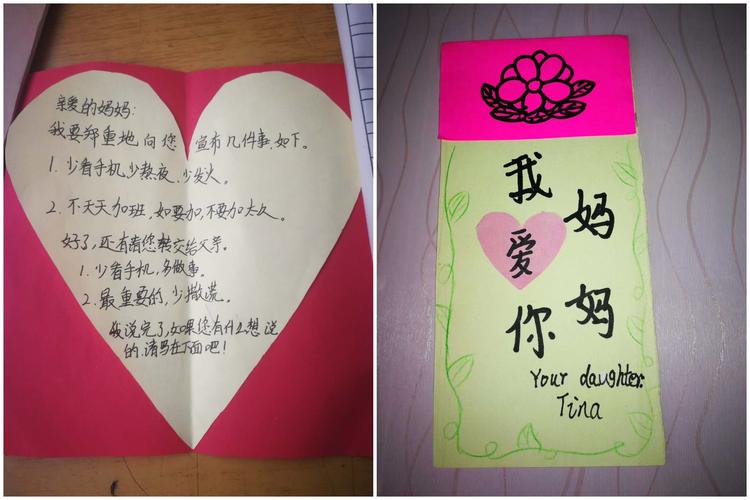 亲爱的妈妈:
我要郑重地向您宣布几件事,如下。
1. 少看手机,少熬夜,少发火。
2. 不天天加班,如要加,不要加太久。
好了,还有请您转交给父亲。
1. 少看手机,多做事。
2. 最重要的,少撒谎。
我说完了,如果您有什么想说
的,请写在下面吧!
我爱你
妈妈
Your daughter:
Tina